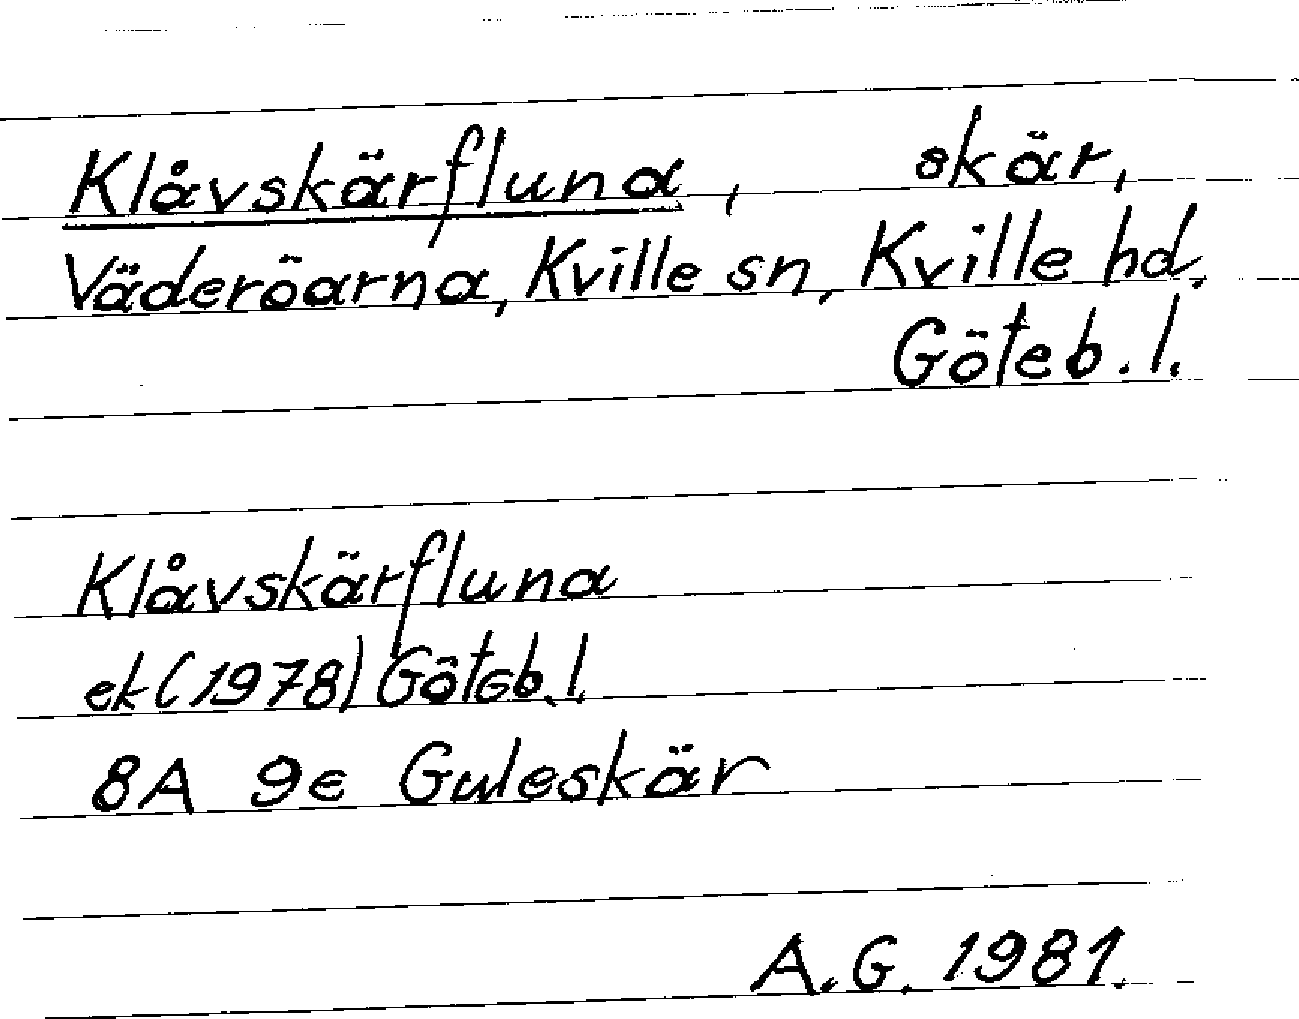 Klåvskärfluna, skär,
Väderöarna, Kville sn, Kville hd,
Göteb. l.
Klåvskärfluna
ek (1978) Göteb. l.
8A 9e Guleskär
A.G. 1981.